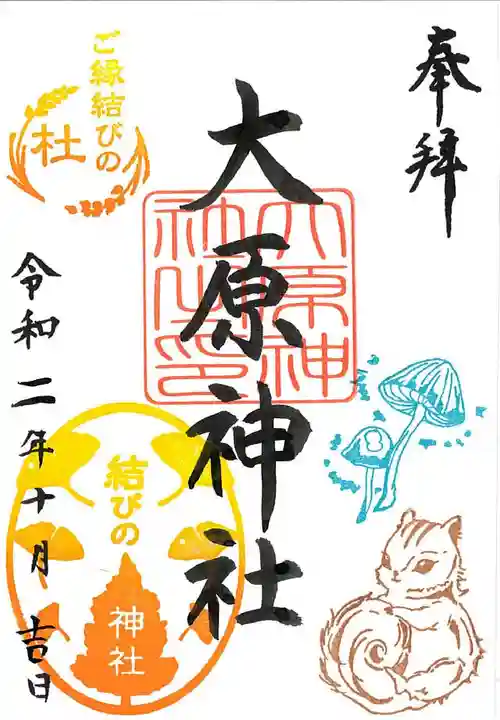 奉拝
大原神社
大原神
社之印
ご縁結びの
杜
令和二年十月吉日
結びの
神社